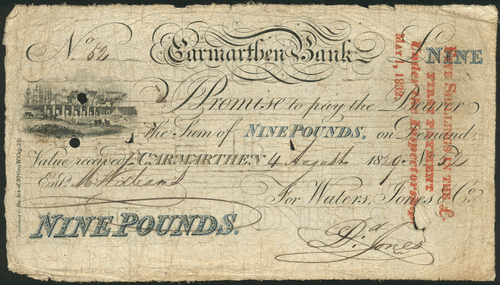 No. 52 Carmarthen Bank NINE
I Promise to pay the Bearer
the Sum of NINE POUNDS, on Demand,
Value received, CARMARTHEN 4 August 18 No. 52
Entd.
For Waters, Jones & Co.
NINE POUNDS.
Dd. Jones
FIVE SHILLINGS IN THE £
FIRST PAYMENT
May 1, 1832